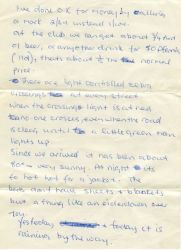 I've done O.K for money by calling
a mark 2/- instead
At the club we can get about 3/4 pint
of beer, or any other drink for 50 Pfennig
(nd), thats about the normal
price.
There are light controlled zebra
crossings at every street
When the crossing light is red
no-one crosses even when the road
is clear, until a little green man
lights up.
Since we arrived it has been about
80° + very sunny. At night its
to hot for a jacket. The
beds don't have sheets + blankets
but a thing like an eiderdown over
you.
Yesterday + today it is
raining by the way.